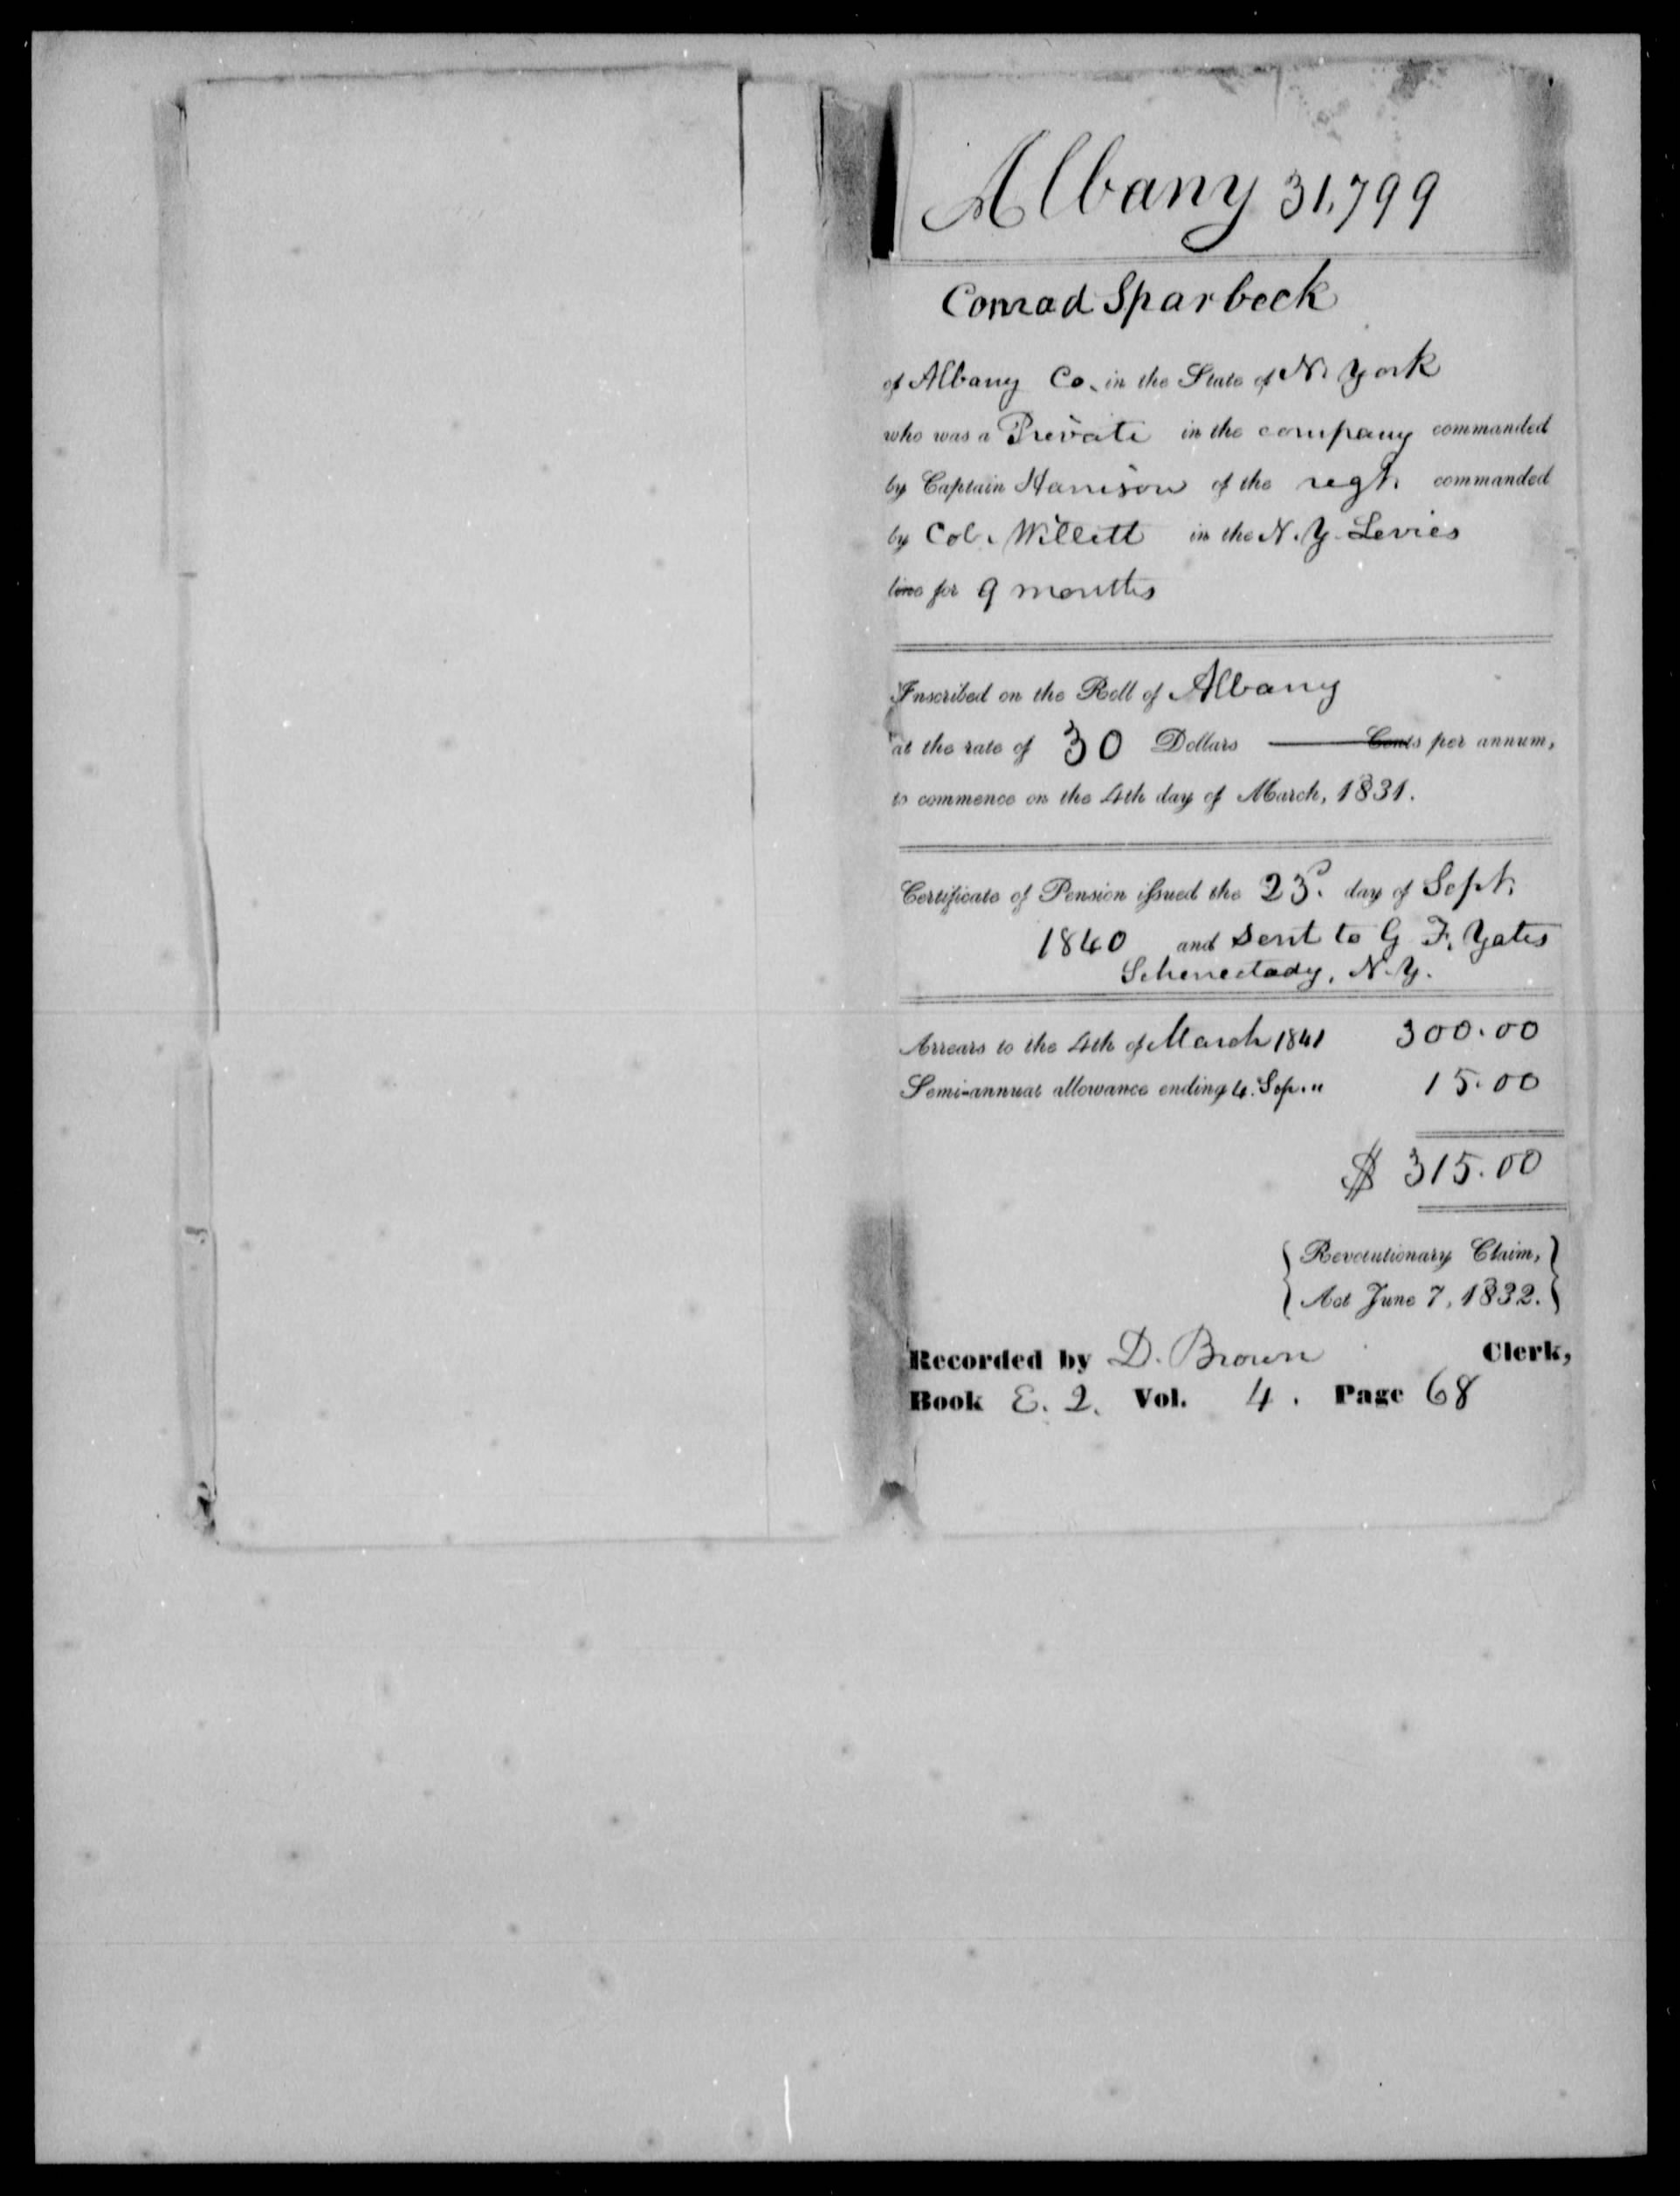 Albany 31,799
Conrad Sparbeck
of Albany Co. in the State of N. York
who was a Private in the company commanded
by Captain Harrison of the regt. commanded
by Col. Willett in the N.Y. Levies
line for 9 months
Inscribed on the Roll of Albany
at the rate of 30 Dollars Cents per annum,
to commence on the 4th day of March, 1831.
Certificate of Pension issued the 23d. day of Sept.
1840 and sent to G. F. Yates
Schenectady, N.Y.
Arrears to the 4th of March 1841 300.00
Semi-annual allowance ending 4. Sep. " 15.00
$ 315.00
{ Revolutionary Claim, }
{ Act June 7, 1832. }
Recorded by D. Brown Clerk,
Book E. 2. Vol. 4. Page 68